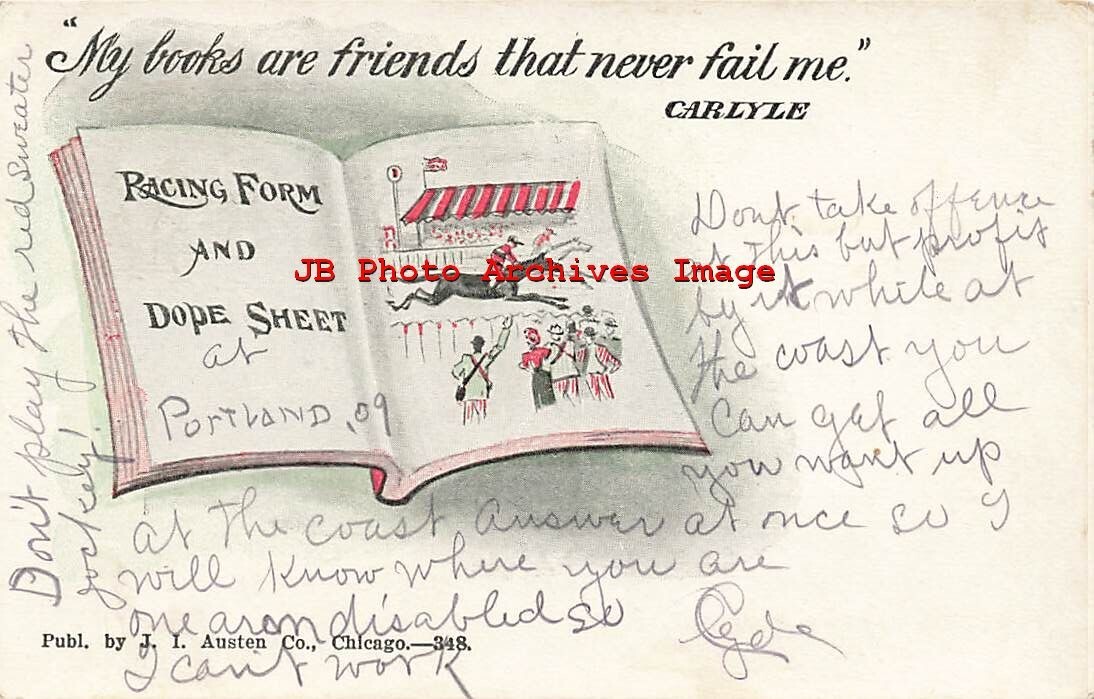 "My books are friends that never fail me."
CARLYLE
RACING FORM
AND
DOPE SHEET
at
PORTLAND, 09
JB Photo Archives Image
Don't play the red sweater
jockey!
Dont take offence
at this but profit
by it while at
the coast you
can get all
you want up
at the coast Answer at once so I
will know where you are
one arm disabled so
I can't work
Publ. by J. I. Austen Co., Chicago.—348.